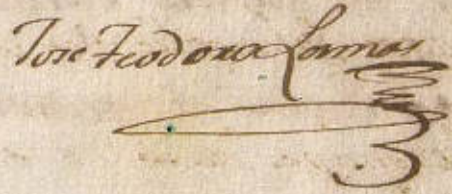 Jose Teodoro Lamas